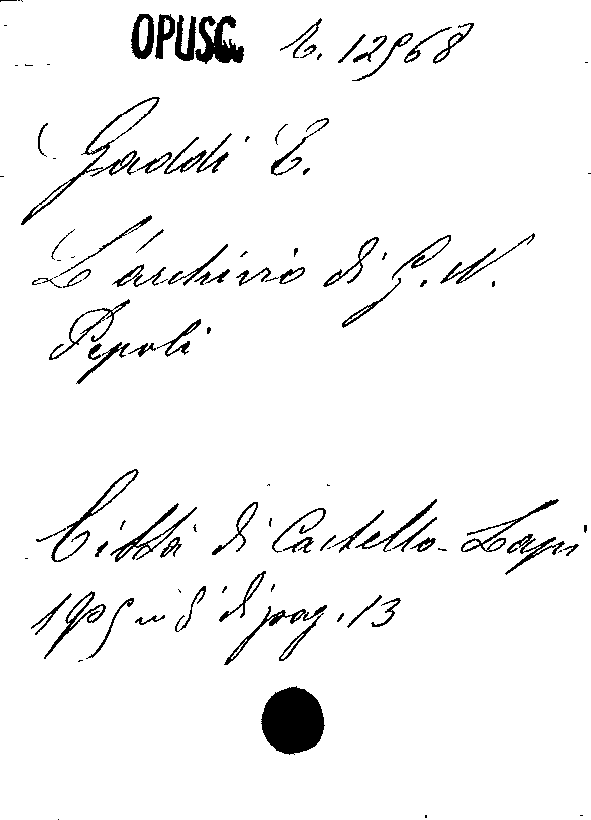 OPUSC. C. 12968
Gaddi E.
L'archivio di G. N.
Pepoli
Città di Castello - Lapi
1905 in 8° di pag. 13